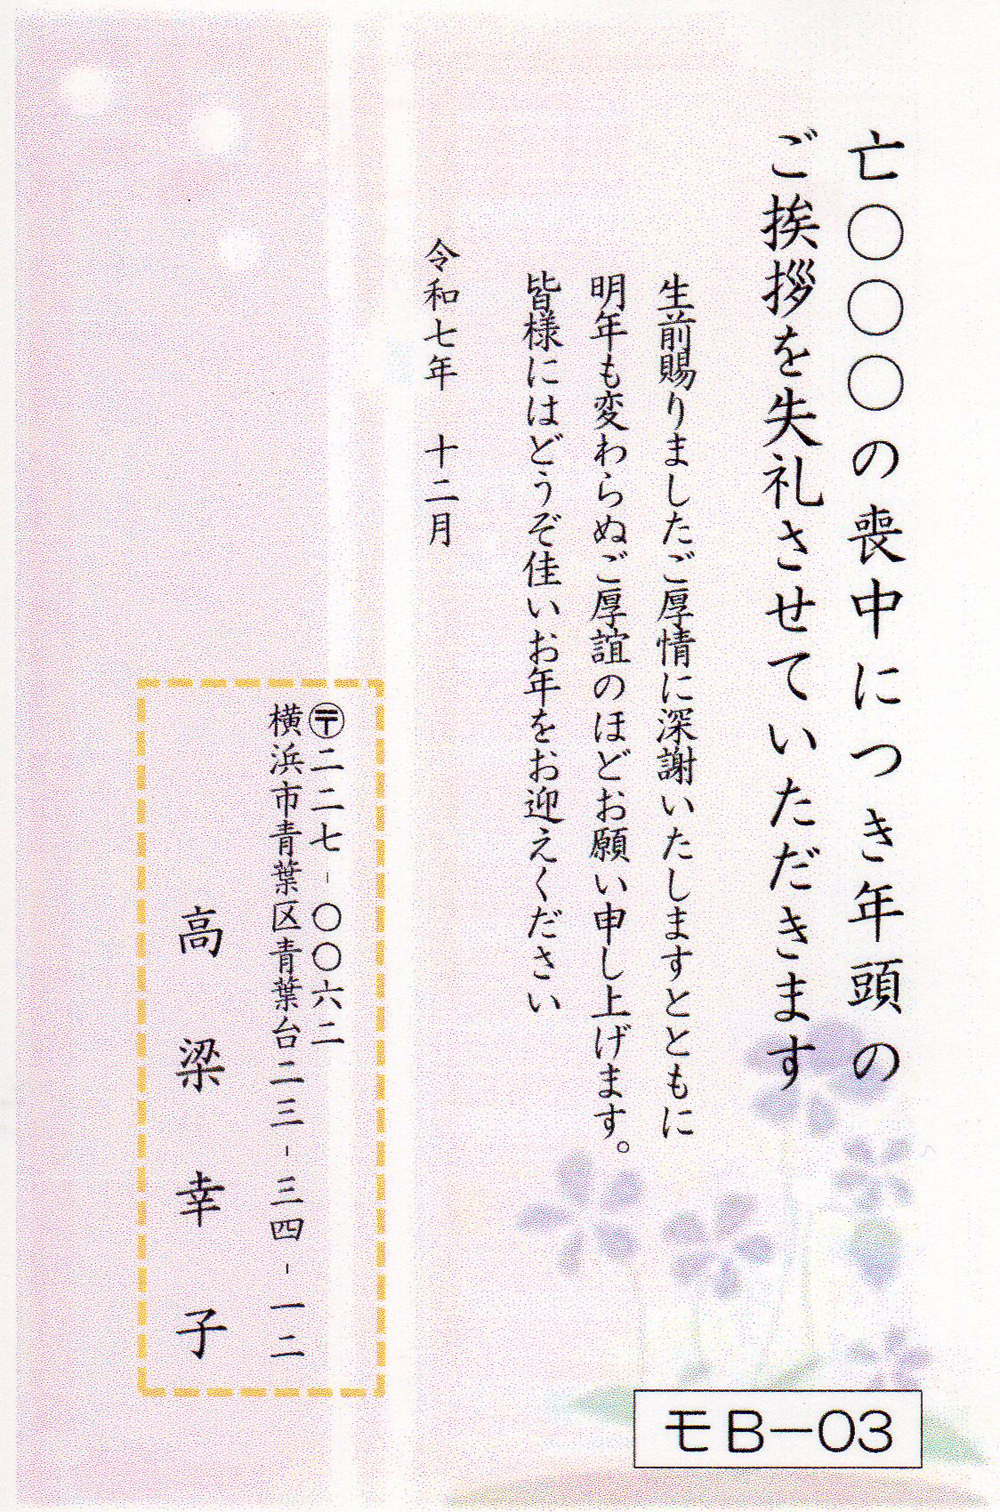 亡〇〇〇の喪中につき年頭の
ご挨拶を失礼させていただきます
生前賜りましたご厚情に深謝いたしますとともに
明年も変わらぬご厚誼のほどお願い申し上げます。
皆様にはどうぞ佳いお年をお迎えください
令和七年 十二月
〒二二七-〇〇六二
横浜市青葉区青葉台二三-三四-一二
高梁幸子
モB-03